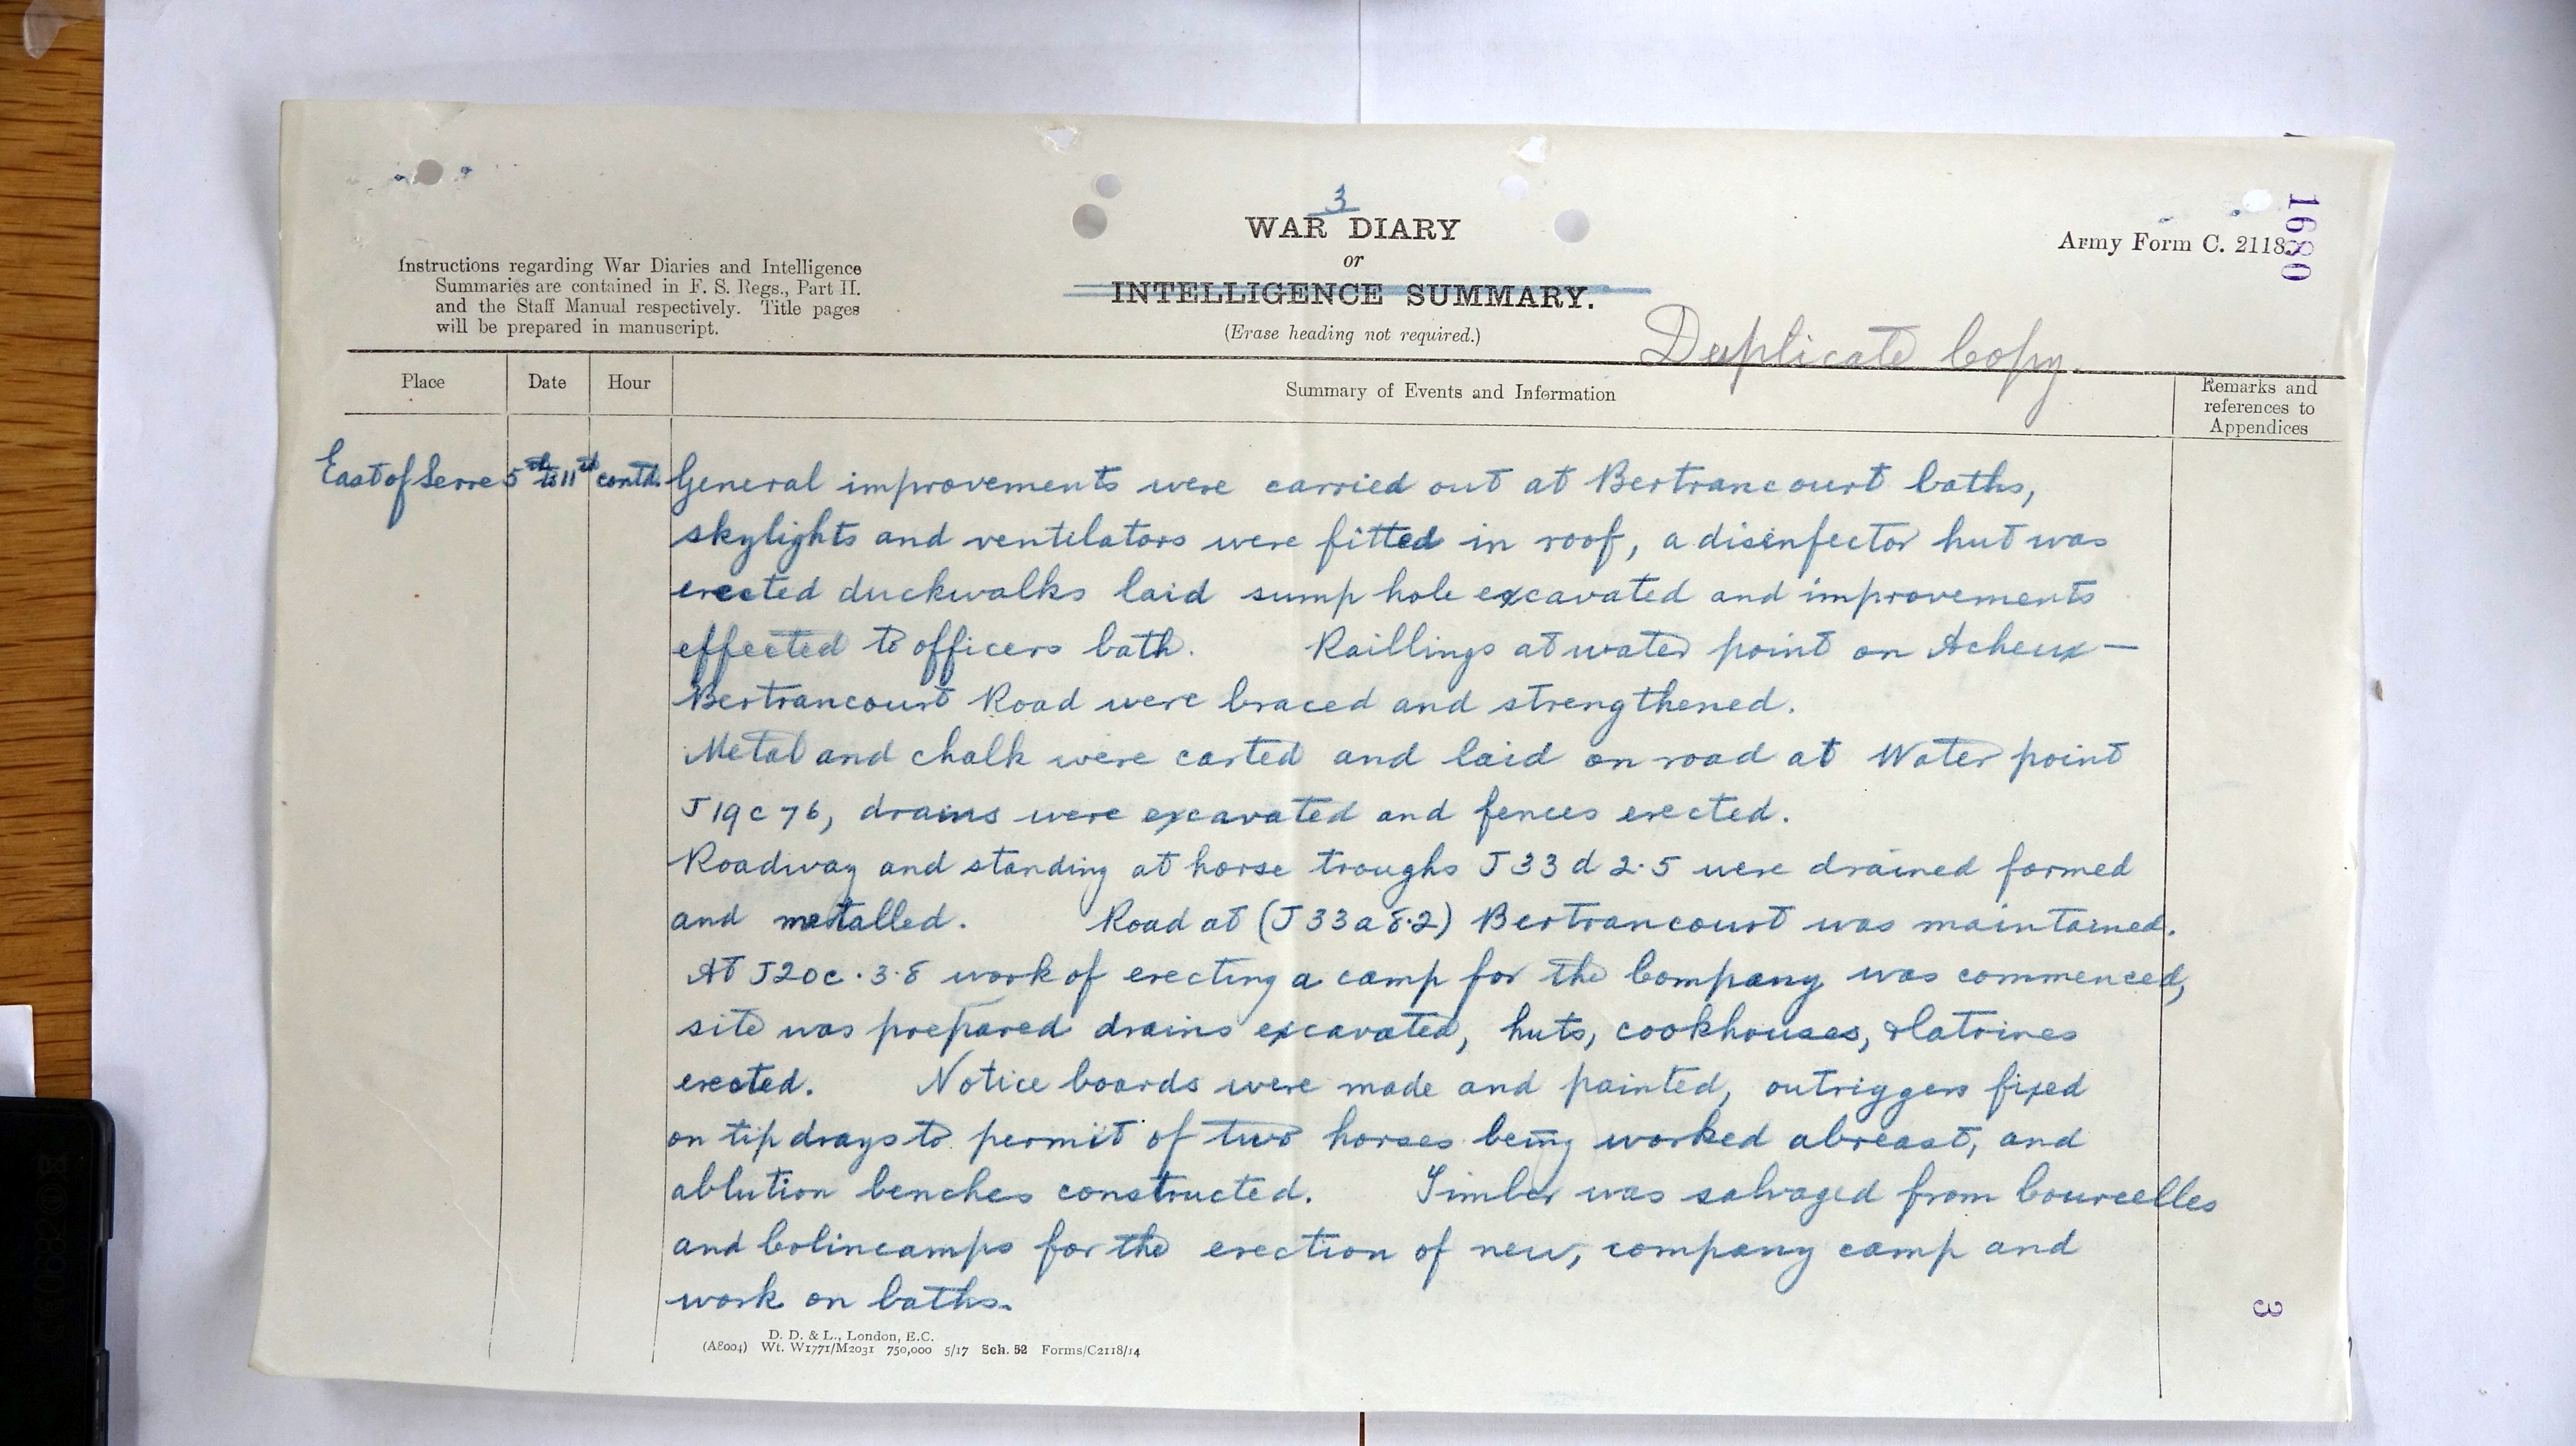 3
WAR DIARY
or
INTELLIGENCE SUMMARY.
(Erase heading not required.)
Instructions regarding War Diaries and Intelligence
Summaries are contained in F. S. Regs., Part II.
and the Staff Manual respectively. Title pages
will be prepared in manuscript.
Army Form C. 2118.
1680
Duplicate Copy.
Place Date Hour Summary of Events and Information Remarks and
references to
Appendices
East of Serre 5th to 11th contd. General improvements were carried out at Bertrancourt baths,
skylights and ventilators were fitted in roof, a disinfector hut was
erected duckwalks laid sump hole excavated and improvements
effected to officers bath. Raillings at water point on Acheux —
Bertrancourt Road were braced and strengthened.
Metal and chalk were carted and laid on road at Water point
J19c 76, drains were excavated and fences erected.
Roadway and standing at horse troughs J33d 2.5 were drained formed
and metalled. Road at (J33a 8.2) Bertrancourt was maintained.
At J20c.3.8 work of erecting a camp for the Company was commenced,
site was prepared drains excavated, huts, cookhouses, & latrines
erected. Notice boards were made and painted, outriggers fixed
on tip drays to permit of two horses being worked abreast, and
ablution benches constructed. Timber was salvaged from Courcelles
and Colincamps for the erection of new, company camp and
work on baths.
3
D. D. & L., London, E.C.
(A8004) Wt. W1771/M2031 750,000 5/17 Sch. 52 Forms/C2118/14